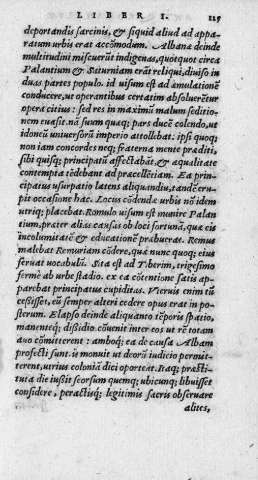 LIBER I. 115
deportandis sarcinis, & siquid aliud ad appa
ratum urbis erat accõmodum. Albanæ deinde
multitudini miscuerũt indigenas, quotquot circa
Palantium & Saturniam erãt reliqui, diuiso in
duas partes populo. id uisum est ad æmulationẽ
conducere, ut operantibus certatim absolueretur
opera citius: sed res in maximũ malum seditio-
nem euasit. nã suum quaq; pars ducẽ colendo, ut
idoneũ uniuersorũ imperio attollebat. ipsi quoq;
non iam concordes neq; fraterna mente præditi,
sibi quisq; principatũ affectabãt, & æqualitate
contempta tẽdebant ad præcellẽtiam. Ea prin-
cipatus usurpatio latens aliquandiu, tandẽ eru-
pit occasione hac. Locus cõdẽdæ urbis nõ idem
utriq; placebat. Romulo uisum est munire Palan
tium, præter alias causas ob loci fortunã, quæ eis
incolumitatẽ & educationẽ præbuerat. Remus
malebat Remuriam cõdere, quæ nunc quoq; eius
feruat uocabulũ. Sita est ad Tiberim, trigesimo
fermè ab urbe stadio. ex ea cõtentione satis ap-
parebat principatus cupiditas. Vieruis enim tũ
cessisset, eũ semper alteri cedere opus erat in po-
sterum. Elapso deinde aliquanto tẽporis spatio,
manenteq; dissidio cõuenit inter eos ut rẽ totam
auo cõmitterent: amboq; ea de causa Albam
profecti sunt. is monuit ut deorũ iudicio permit-
terent, utrius coloniã dici oporteat. Itaq; præsti-
tuta die iussit seorsum quemq; ubicunq; libuisset
considere, peractisq; legitimis sacris obseruare
alites,